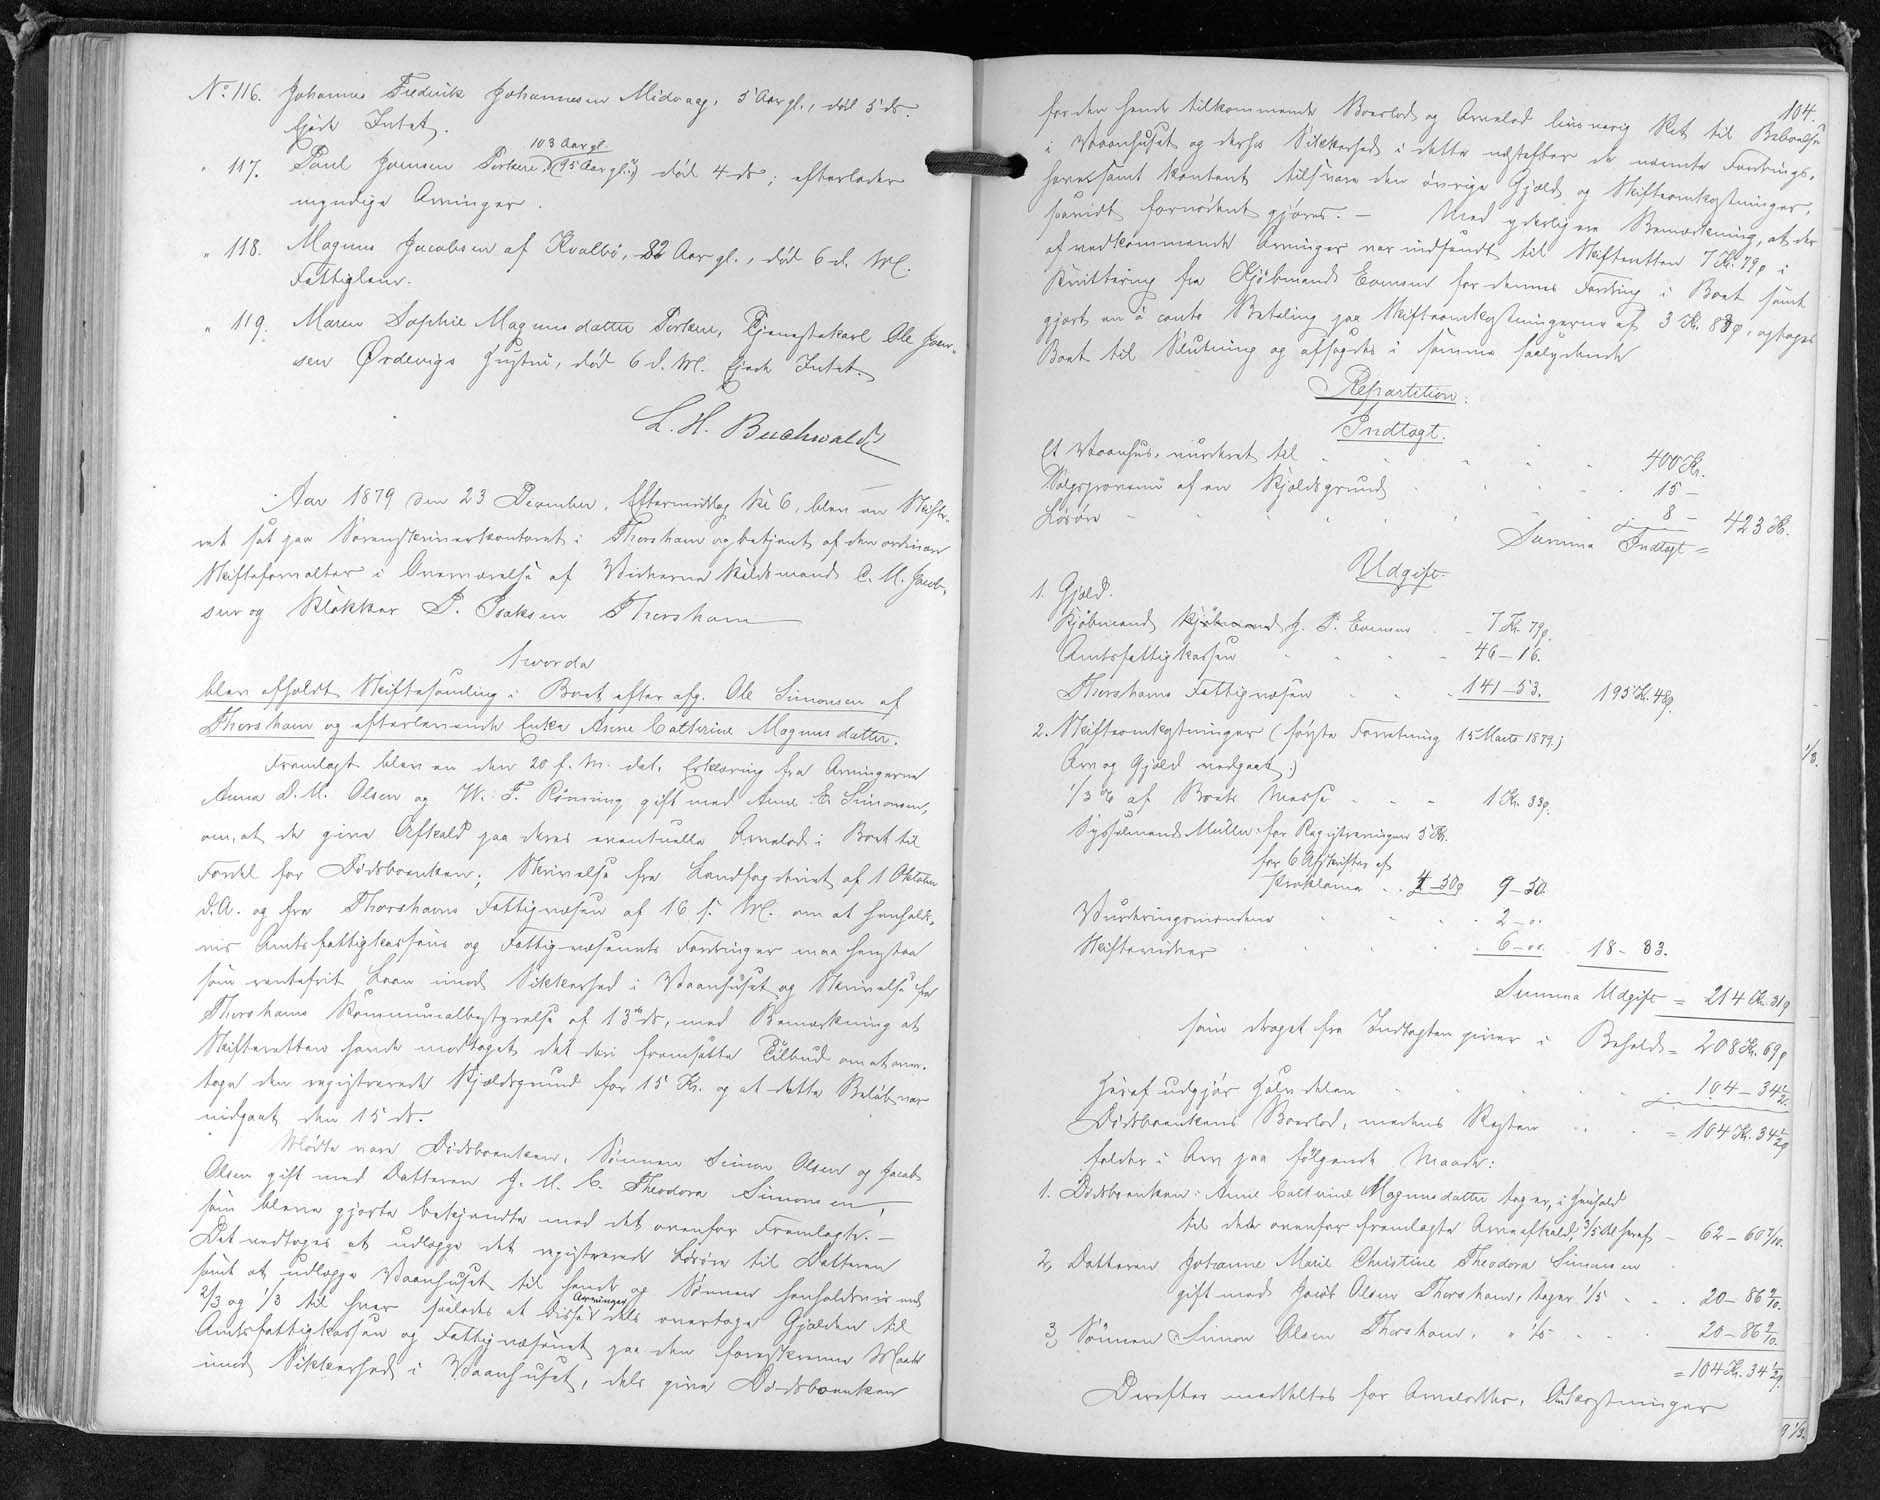 No. 116. Johannes Frederik Johannesen Midvaag, 5 Aar gl., død 3' ds.
Ejede Intet.
103 Aar gl.
" 117. Poul Joensen Porkere, (95 Aar gl.?) død 4 ds; efterlader
myndige Arvinger.
" 118. Magnus Jacobsen af Kvalbø, 82 Aar gl., død 6 d. M.
Fattiglem.
" 119. Maren Sophie Magnusdatter Porkere, Tjenestekarl Ole Joen-
sen Ørdevigs Hustru, død 6 d. M. Ejede Intet.
L. H. Buchwaldt
Aar 1879 den 23 December, Eftermiddag Kl 6, blev en Skifte-
ret sat paa Sorenskriverkontoret i Thorshavn og betjent af den ordinære
Skifteforvalter i Overværelse af Vidnerne Kildsmand C. M. Jacob-
sen og Klokker P. Isaksen Thorshavn
hvorda
blev afholdt Skiftesamling i Boet efter afg. Ole Simonsen af
Thorshavn og efterlevende Enke Anne Cathrine Magnusdatter.
Fremlagt blev en den 20 f. M. dat. Erklæring fra Arvingerne
Anna D. M. Olsen og W. F. Rönning gift med Anne E. Simonsen,
om, at de give Afkald paa deres eventuelle Arvelod i Boet til
Fordel for Dødsboenken; Skrivelse fra Landfogderiet af 1 Oktober
d. A. og fra Thorshavns Fattigvæsen af 16 f. M. om at henholds-
vis Amtsfattigkassens og Fattigvæsenets Fordringer maa henstaa
som rentefrit Laan imod Sikkerhed i Vaanhuset og Skrivelse fra
Thorshavns Kommunalbestyrelse af 13de ds, med Bemærkning at
Skifteretten havde modtaget det deri fremsatte Tilbud om at over-
tage den registrerede Kjældsgrund for 15 Kr. og at dette Beløb var
indgaaet den 15 ds.
Mødte vare Dødsboenken, Sønnen Simon Olsen og Jacob
Olsen gift med Datteren J. M. C. Theodora Simonsen,
som bleve gjorte bekjendte med det ovenfor Fremlagte. —
Det vedtoges at udlægge det registrerede Løsøre til Datteren
samt at udlægge Vaanhuset til hende og Sønnen henholdsvis med
2/3 og 1/3 til hver saaledes at disse Arvinger dels overtage Gjælden til
Amtsfattigkassen og Fattigvæsenet paa den foreskrevne Maade
imod Sikkerhed i Vaanhuset, dels give Dødsboenken
104.
for den hende tilkommende Boeslod og Arvelod livsvarig Ret til Beboelse
i Vaanhuset og derhos Sikkerhed i dette næstefter de nævnte Fordrings-
havere samt kontant tilsvare den øvrige Gjæld og Skifteomkostninger,
saavidt fornødent gjøres. — Med yderligere Bemærkning, at der
af vedkommende Arvinger var indsendt til Skifteretten 7 Kr. 79 ø i
Kvittering fra Kjøbmand Evensen for dennes Fordring i Boet samt
gjort en à conto Betaling paa Skifteomkostningerne af 3 Kr. 83 ø, optoges
Boet til Slutning og afsagdes i samme saalydende
Repartition:
Indtægt.
Et Vaanhus, vurderet til 400 Kr.
Salgsprovenü af en Kjældsgrund 15 —
Løsøre 8 —
Summa Indtægt = 423 Kr.
Udgift.
1. Gjæld.
Kjøbmand Kjøbmand J. P. Evensen 7 Kr. 79 ø.
Amtsfattigkassen 46 — 16.
Thorshavns Fattigvæsen 141 — 53. 195 Kr. 48 ø.
2. Skifteomkostninger (første Forretning 15 Marts 1879;
Arv og Gjæld vedgaaet.)
1/3 % af Boets Masse 1 Kr. 33 ø.
Sysselmand Müller: for Registreringen 5 Kr.
for 6 Afskrifter af
Proklama 4 — 50 ø 9 — 50
Vurderingsmændene 2 — 0.
Skiftevidner 6 — 00. 18 — 83.
Summa Udgift = 214 Kr. 31 ø
som draget fra Indtægten giver i Behold = 208 Kr. 69 ø
Heraf udgjør Halvdelen 104 — 34 1/2.
Dødsboenkens Boeslod, medens Resten = 104 Kr. 34 1/2 ø
falder i Arv paa følgende Maade:
1. Dødsboenken: Anne Cathrine Magnusdatter tager, i Henhold
til det ovenfor fremlagte Arveafkald, 3/5 Del heraf — 62 — 60 7/10.
2, Datteren Johanne Marie Christine Theodora Simonsen
gift med Jacob Olsen Thorshavn, tager 1/5 20 — 86 9/10.
3, Sønnen Simon Olsen Thorshavn, " 1/5 20 — 86 9/10.
= 104 Kr. 34 1/2 ø.
Derefter meddeltes for Arvelodder, Omkostninger
1/3.
9 1/3.